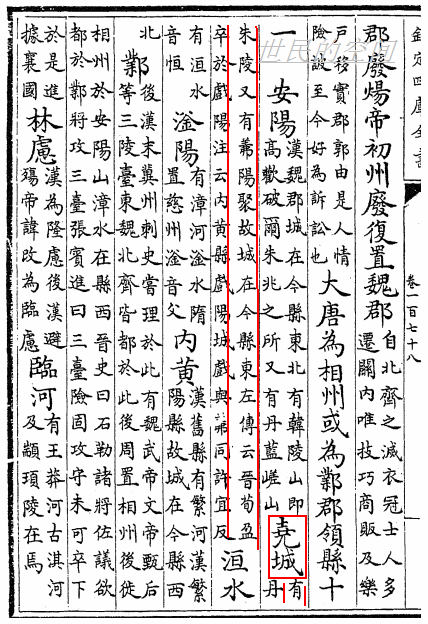 欽定四庫全書
卷一百七十八
世民的空间
郡廢煬帝初州廢復置魏郡
自北齊之滅衣冠士人多
遷關內唯技巧商販及樂
戶移實郡郭由是人情
險詖至今好為訴訟也
大唐為相州或為鄴郡領縣十
一 安陽
漢魏郡城在今縣東北有韓陵山即
高歡破爾朱兆之所又有丹藍嵯山
堯城
有
丹
朱陵又有羛陽聚故城在今縣東左傳云晉荀盈
卒於戲陽注云內黃縣戲陽城戲與羛同許宜反
洹水
有洹水
音恒
滏陽
有漳河滏水隋
置慈州滏音父
內黃
漢舊縣有繁河漢繁
陽縣故城在今縣西
北
鄴
後漢末冀州刺史嘗理於此有魏武帝文帝甄后
等三陵臺東魏北齊皆都於此後周置相州後徙
相州於安陽山漳水在縣西晉史曰石勒諸將佐議欲
都於鄴將攻三臺張賓進曰三臺險固攻守未可卒下
於是進
據襄國
林慮
漢為隆慮後漢避
殤帝諱改為臨慮
臨河
有王莽河古淇河
及顓頊陵在焉